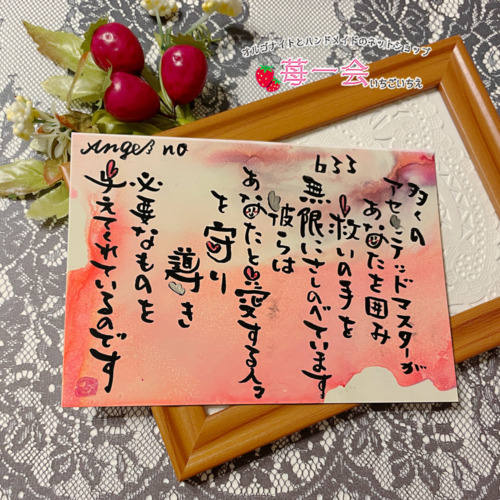 オルゴナイトとハンドメイドのネットショップ
苺一会
いちごいちえ
Angel no
633
多くの
アセンデッドマスターが
あなたを囲み
救いの手を
無限にさしのべています
彼らは
あなたと愛する人々
を守り
導き
必要なものを
与えてくれているのです